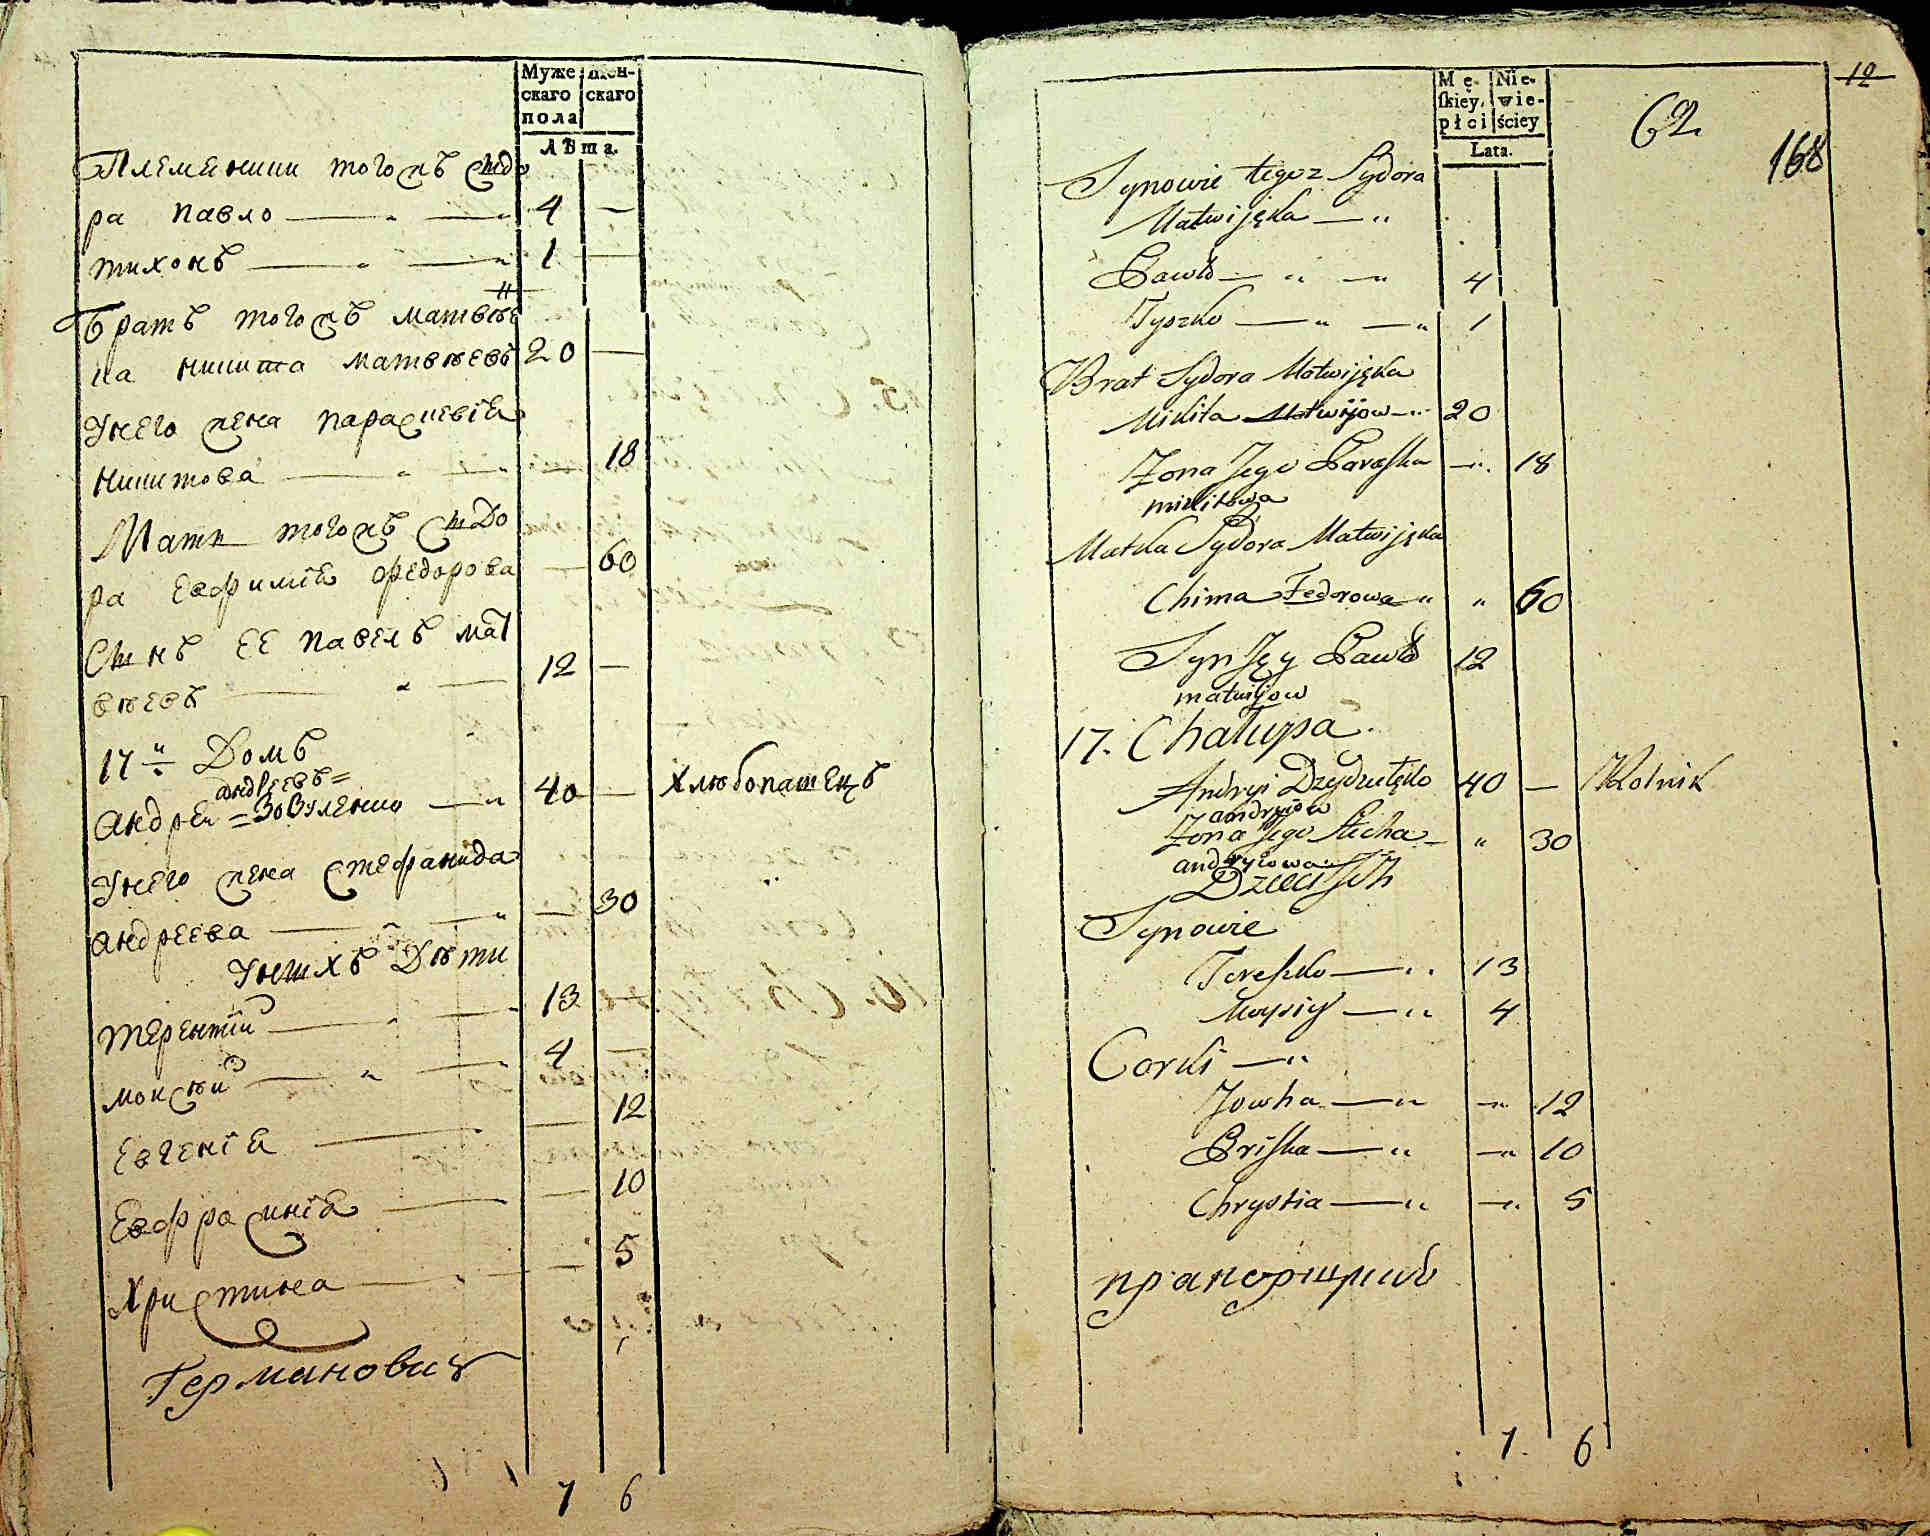 Муже
скаго
пола
жен-
скаго
Лѣта.
Племеники тогожъ Сидо
ра Павло — " — " 4 —
Тихонъ — " — " 1 —
Братъ тогожъ Матвѣе
ка Никита Матвѣевъ 20 —
Унего жена Параскевіа
Никитова — " — " — 18
Мати тогожъ Сидо
ра Евфиміа Федорова — 60
Сынъ ее Павелъ Мат
вѣевъ — " — 12 —
17й Домъ
андреевъ=
Андрей =Зозуленко — " 40 — Хлѣбопашецъ
Унего жена Стефанида
Андреева — " — " — 30
Унихъ Дѣти
Терентій — " — 13 —
Моисѣй — " — " 4 —
Евгеніа — — 12
Евфросиніа — — 10
Христина — " — 5
Германовичъ
7 6
Mę-
skiey
płci
Nie-
wie-
ściey
Lata.
62
12
168
Synowie tegoz Sydora
Matwijęka — "
Pawło — " — " 4
Tyszko — " — " 1
Brat Sydora Matwijęka
Mikita Matwijow — " 20
Zona Jego Paraska — " 18
mikitowa
Matka Sydora Matwijęka
Chima Fedorowa " " 60
Syn Jęy Pawło 12
matwijow
17. Chałupa.
Andryi Dzydzulęko 40 — Rolnik
andryiow
Zona Jego Stecha — " 30
andryiowa
Dzieci Ich
Synowie
Tereszko — " 13
Moysiy — " 4
Corki — "
Jowha — " — " 12
Priska — " — " 10
Chrystia — " — " 5
прапорщикъ
7 6